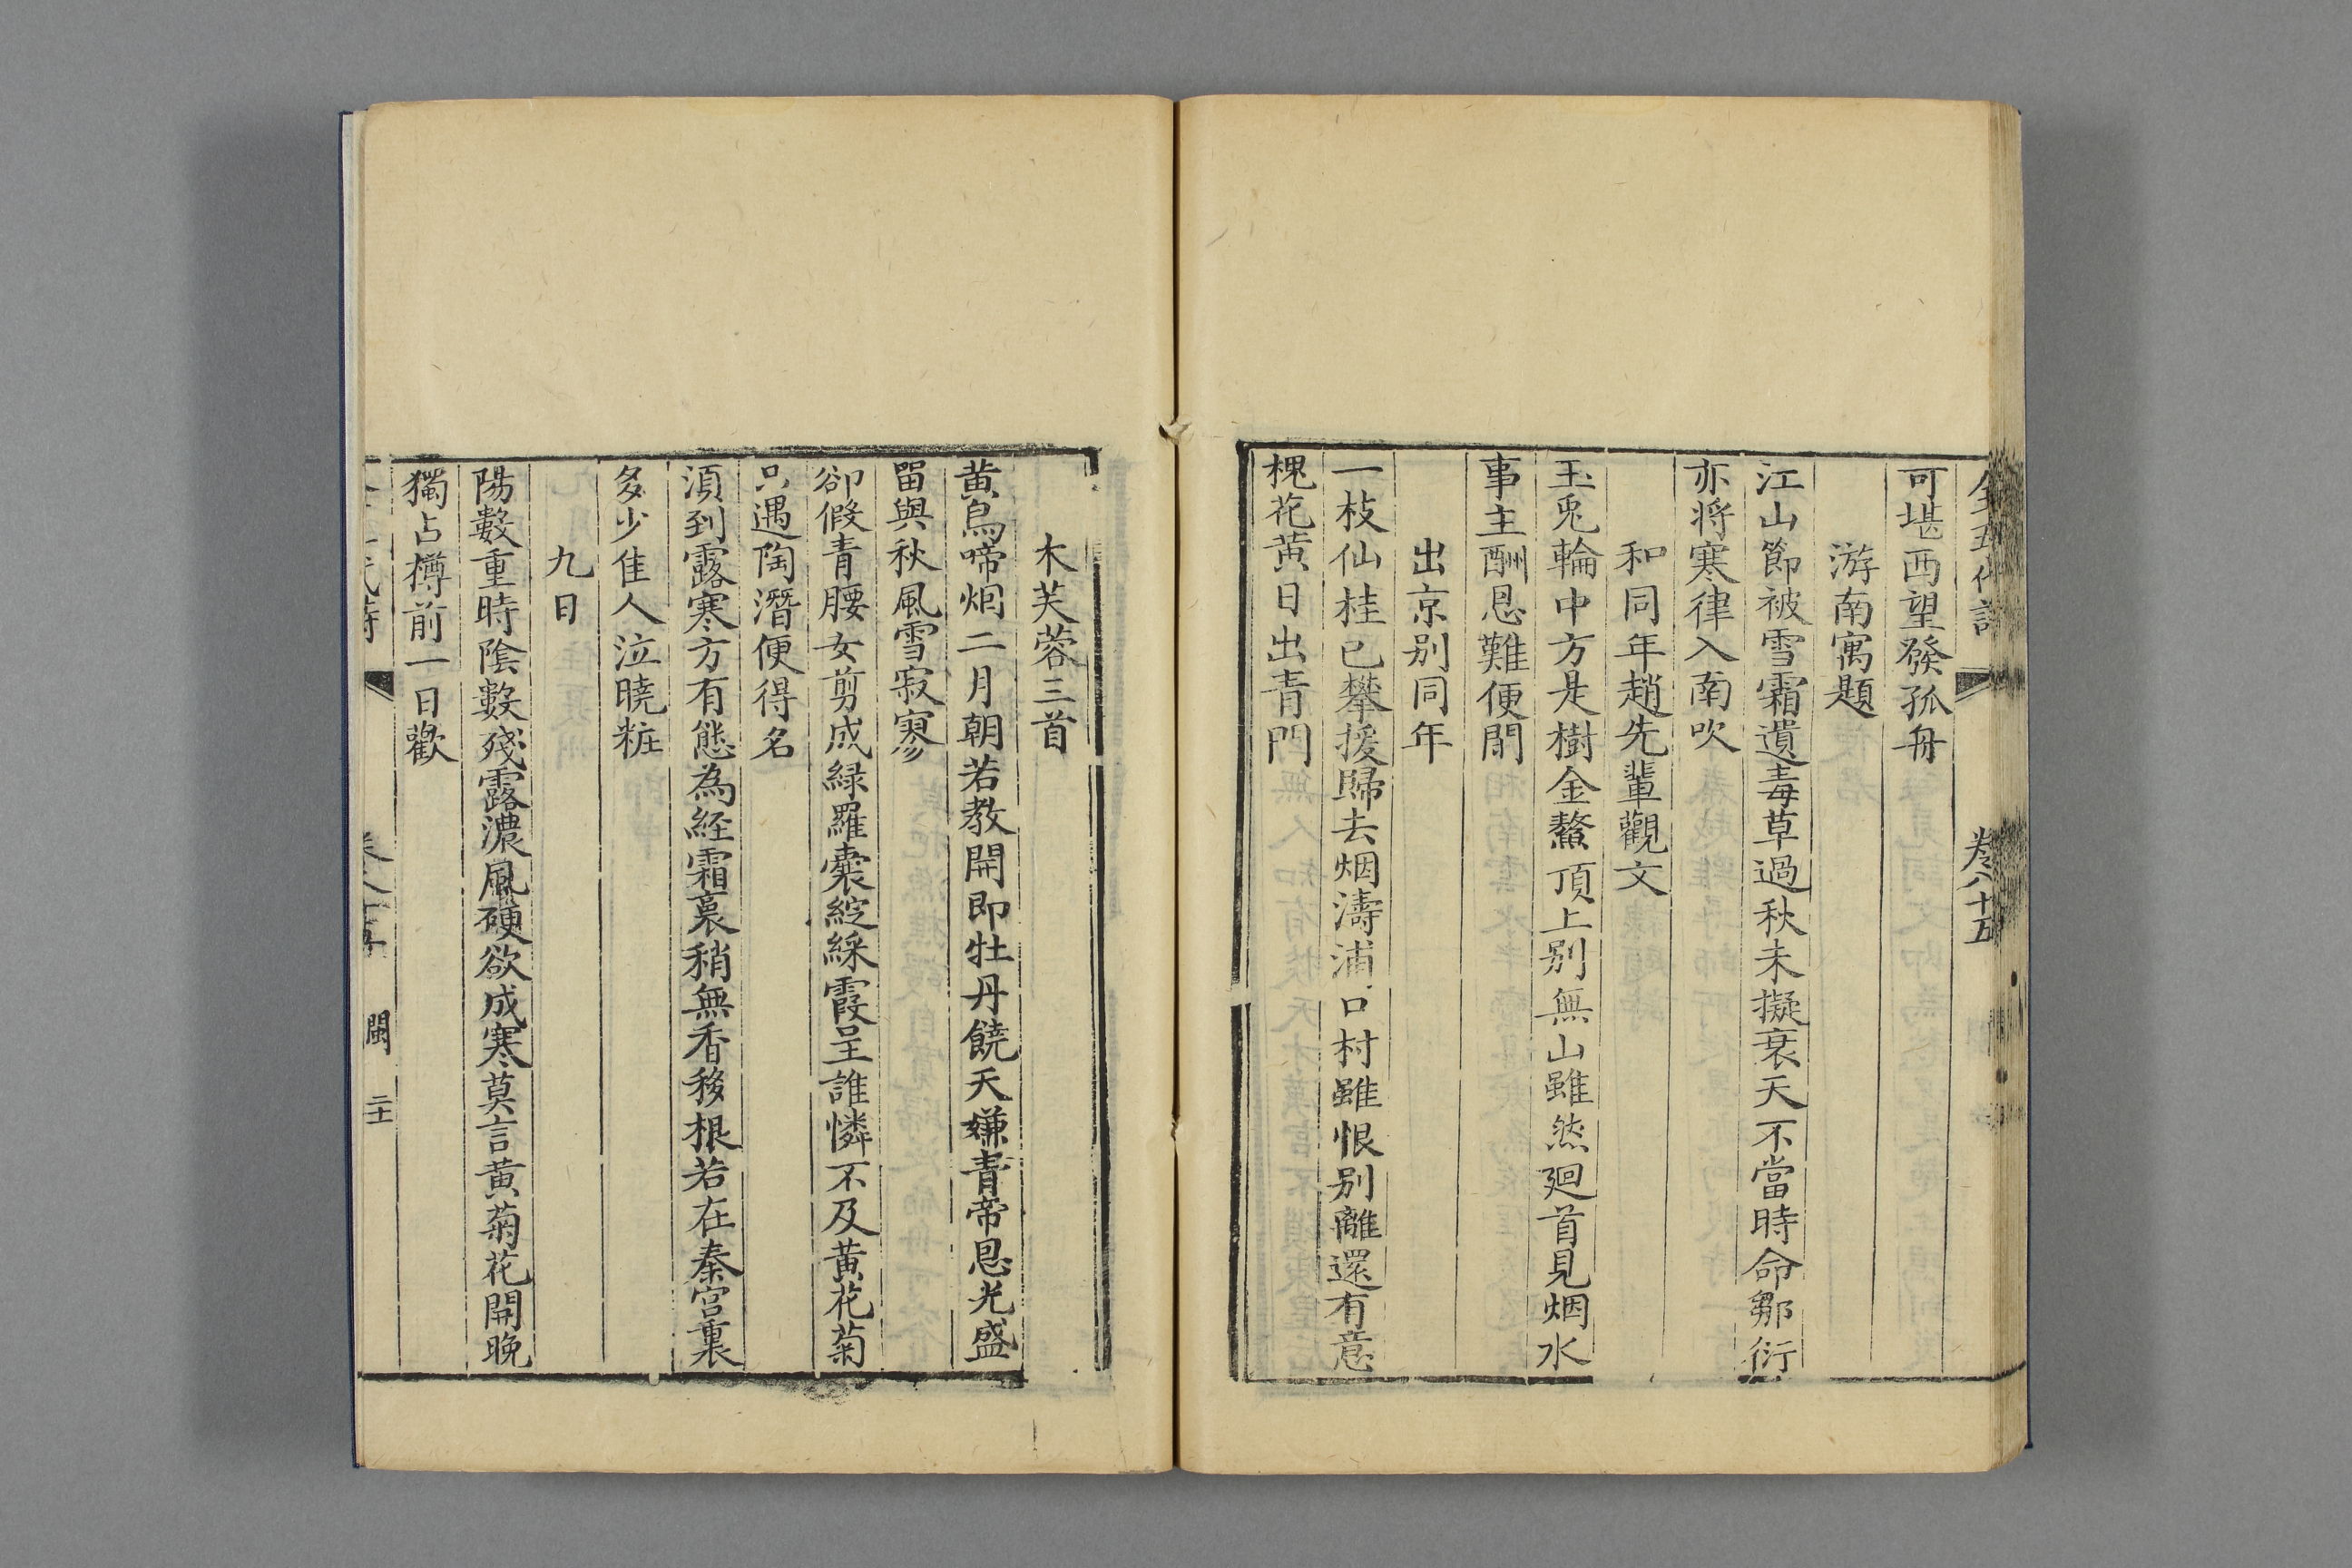 全五代詩
卷八十五
可堪西望發孤舟
游南寓題
江山節被雪霜遺毒草過秋未擬衰天不當時命鄒衍
亦將寒律入南吹
和同年趙先輩觀文
玉兎輪中方是樹金鰲頂上别無山雖然廻首見烟水
事主酬恩難便閒
出京别同年
一枝仙桂已攀援歸去烟濤浦口村雖恨别離還有意
槐花黃日出青門
木芙蓉三首
黄鳥啼烟二月朝若教開即牡丹饒天嫌青帝恩光盛
留與秋風雪寂寥
卻假青腰女剪成緑羅囊綻綵霞呈誰憐不及黄花菊
只遇陶潛便得名
須到露寒方有態為經霜裏稍無香移根若在秦宫裏
多少佳人泣曉粧
九日
陽數重時陰數殘露濃風硬欲成寒莫言黄菊花開晚
獨占樽前一日歡
閩
二十